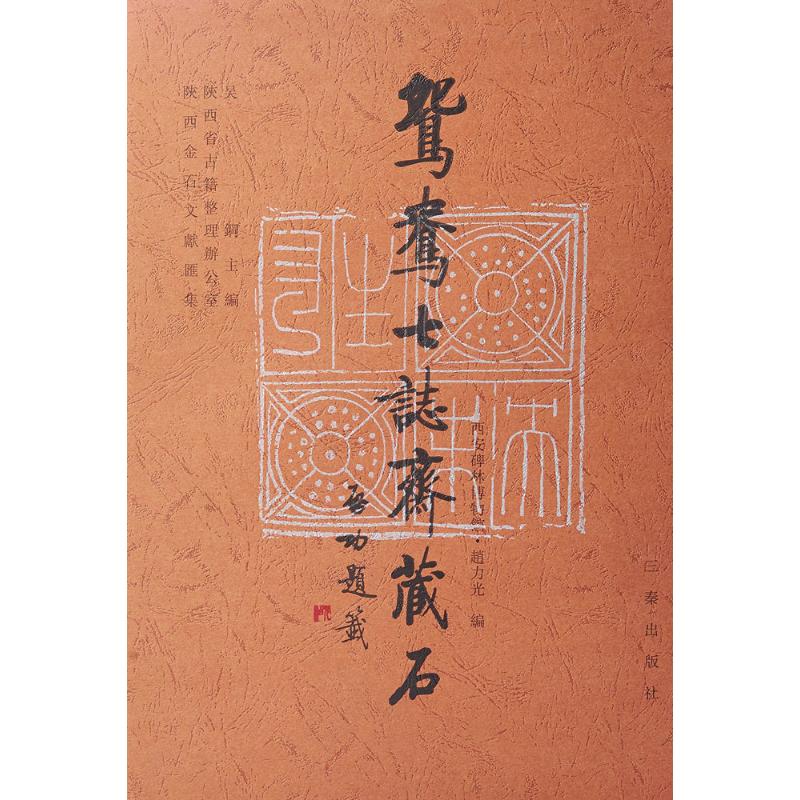 三秦出版社
西安碑林博物館·趙力光 編
鴛鴦七誌齋藏石
啓功題籤
吴 鋼 主編
陝西省古籍整理辦公室
陝西金石文獻匯集